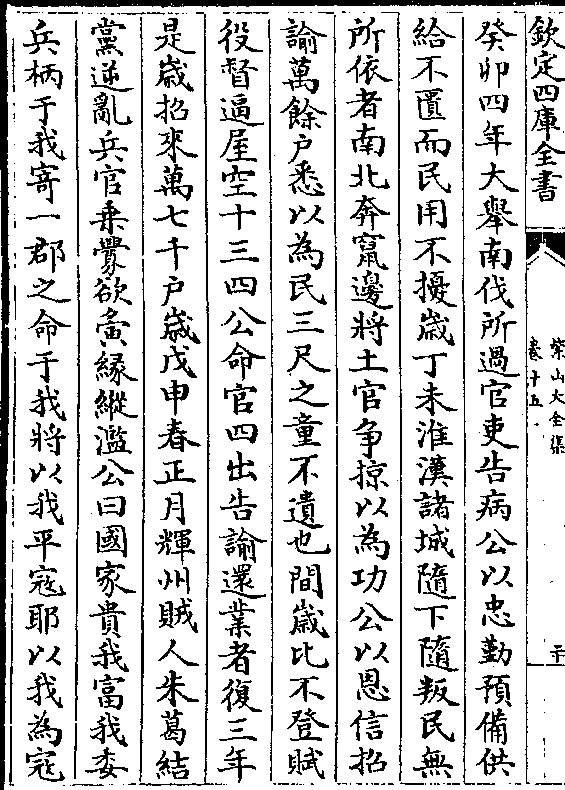 欽定四庫全書
紫山大全集
卷十五
癸卯四年大舉南伐所過官吏告病公以忠勤預備供
給不匱而民用不擾歳丁未淮漢諸城隨下隨叛民無
所依者南北奔竄邊將土官争掠以為功公以恩信招
諭萬餘户悉以為民三尺之童不遺也間歳比不登賦
役督逼屋空十三四公命官四出告諭還業者復三年
是歳招來萬七千户歳戊申春正月輝州賊人朱葛結
黨逆亂兵官乗釁欲夤緣縱濫公曰國家貴我富我委
兵柄于我寄一郡之命于我將以我平宼耶以我為宼